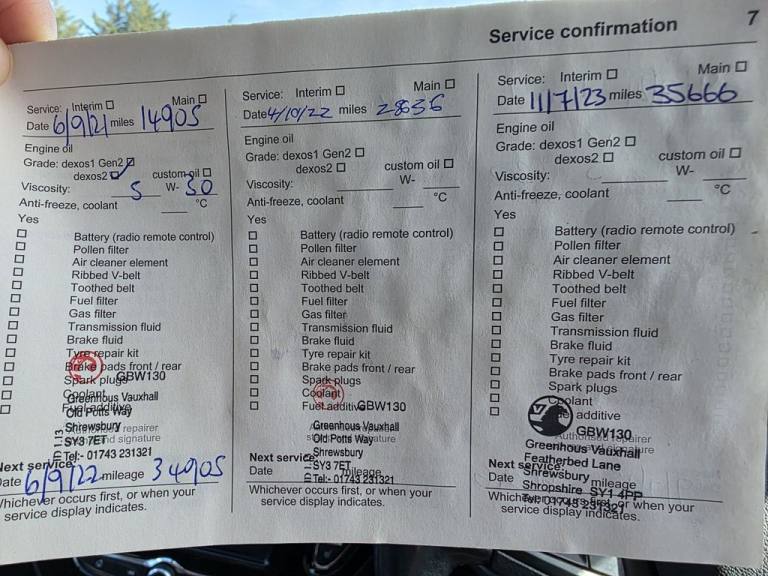 Service confirmation 7
Service: Interim Main
Date 6/9/21 miles 14905
Engine oil
Grade: dexos1 Gen2
dexos2 custom oil
Viscosity: 5 W- 30
Anti-freeze, coolant °C
Yes
Battery (radio remote control)
Pollen filter
Air cleaner element
Ribbed V-belt
Toothed belt
Fuel filter
Gas filter
Transmission fluid
Brake fluid
Tyre repair kit
Brake pads front / rear
Spark plugs GBW130
Coolant
Greenhous Vauxhall
Fuel additive
Old Potts Way
Shrewsbury
SY3 7ET
signature
Tel:- 01743 231321
Next service:
Date 6/9/22 mileage 34905
Whichever occurs first, or when your
service display indicates.
Service: Interim Main
Date 4/10/22 miles
Engine oil
Grade: dexos1 Gen2
dexos2 custom oil
Viscosity: W-
Anti-freeze, coolant °C
Yes
Battery (radio remote control)
Pollen filter
Air cleaner element
Ribbed V-belt
Toothed belt
Fuel filter
Gas filter
Transmission fluid
Brake fluid
Tyre repair kit
Brake pads front / rear
Spark plugs
Coolant
Fuel additive GBW130
Greenhous Vauxhall
Old Potts Way
Shrewsbury
SY3 7ET
Tel:- 01743 231321
Next service:
Date mileage
Whichever occurs first, or when your
service display indicates.
Service: Interim Main
Date 11/7/23 miles 35666
Engine oil
Grade: dexos1 Gen2
dexos2 custom oil
Viscosity: W-
Anti-freeze, coolant °C
Yes
Battery (radio remote control)
Pollen filter
Air cleaner element
Ribbed V-belt
Toothed belt
Fuel filter
Gas filter
Transmission fluid
Brake fluid
Tyre repair kit
Brake pads front / rear
Spark plugs
Coolant
additive
GBW130
Authorised repairer
Greenhous Vauxhall
Featherbed Lane
Next service:
Shrewsbury
Date mileage
Shropshire SY1 4PP
Tel: 01743 231321
Whichever occurs first, or when your
service display indicates.